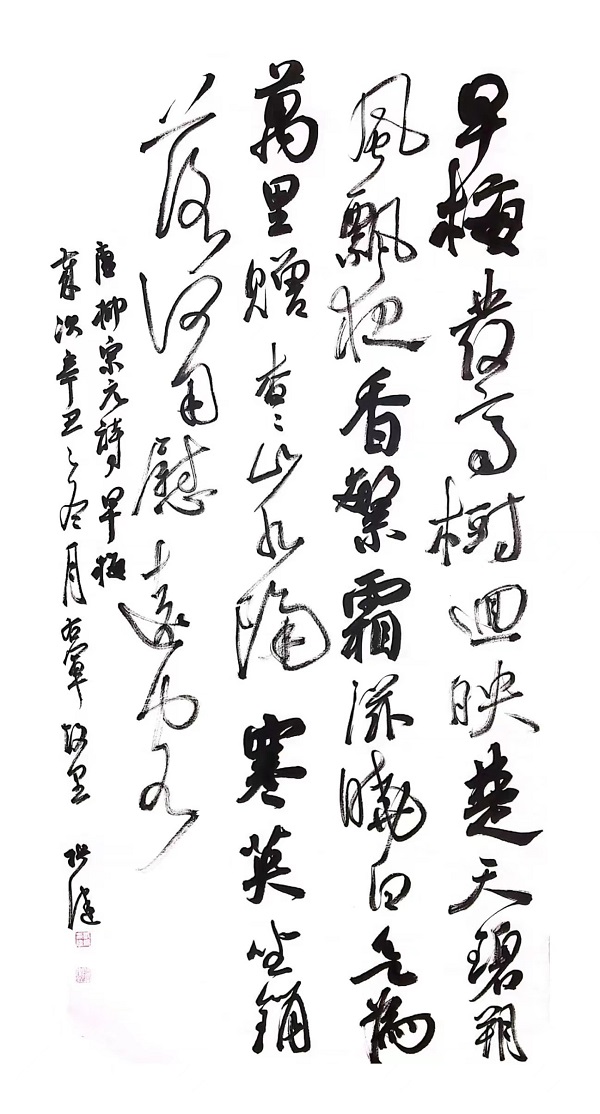 早梅發高樹迴映楚天碧朔
風飄夜香繁霜滋曉白欲為
萬里贈杳々山水隔寒英坐銷
落何用慰遠客
唐柳宗元詩早梅
歲次辛丑之冬月右軍故里